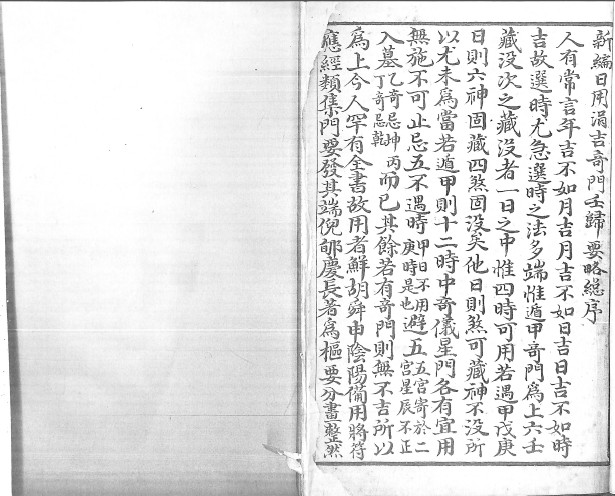 新編日用涓吉奇門五總歸要略總序
人有常言年吉不如月吉月吉不如日吉日吉不如時
吉故選時尤急選時之法多端惟遁甲奇門爲上六壬
藏没次之藏没者一日之中惟四時可用若遇甲戊庚
日則六神固藏四煞固没矣他日則煞可藏神不没所
以尤未爲當若遁甲則十二時中奇儀星門各有宜用
無施不可止忌五不遇時甲日不用庚時是也避五五宮寄於二宮星辰不正
入墓乙奇忌坤丙丁奇忌乾而已其餘若有奇門則無不吉所以
爲上今人罕有全書故用者鮮胡舜申陰陽備用將符
應經類集門要發其端倪郇慶長著爲樞要分書整然